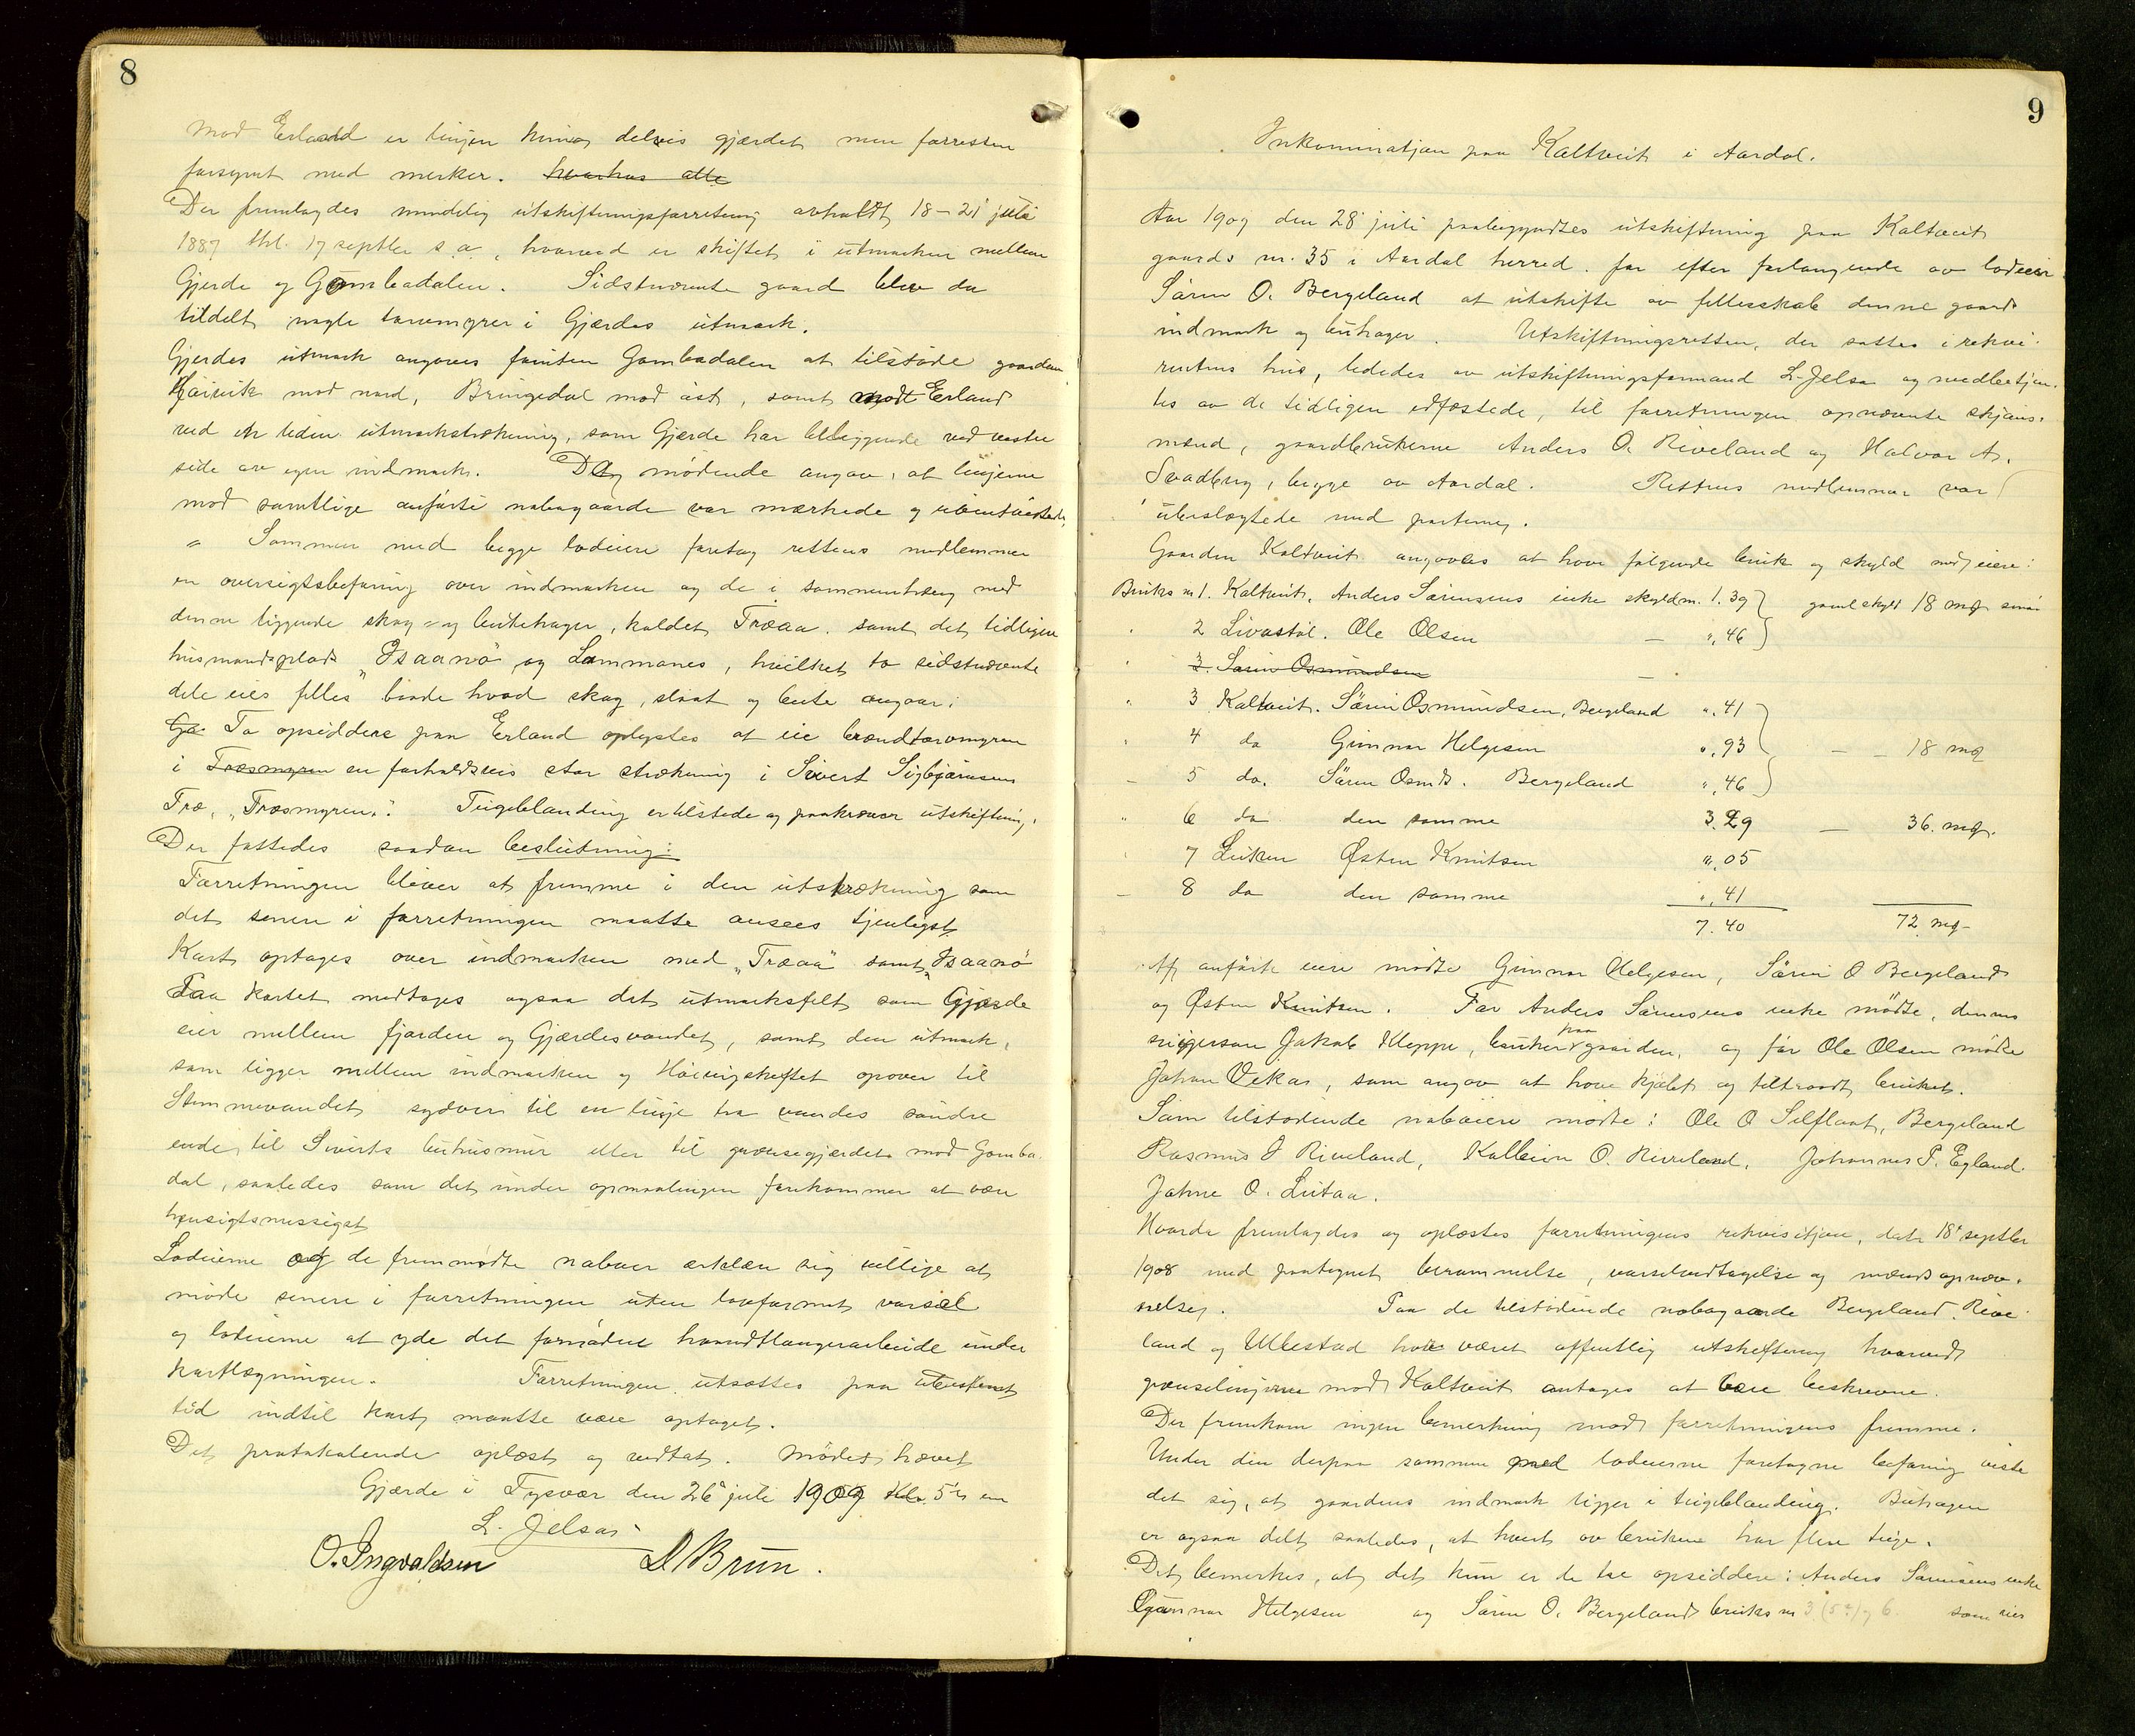 8
mod Erland er linjen kun delvis gjærdet men forresten
forsynt med merker. hvorhos alle
Der fremlagdes mindelig utskiftningsforretning avholdt 18-21 juli
1887 thl. 17 septbr s. a., hvorved er skiftet i utmarken mellem
Gjerde og Gombadalen. Sidstnævnte gaard blev da
tildelt nogle torvmyrer i Gjærdes utmark.
Gjerdes utmark angaves foruten Gombadalen at tilstøde gaarden
mod nord, Bringedal mod øst, samt modt Erland
ved en liden utmarkstrækning, som Gjærde har beliggende ved vestre
side av egen indmark. De mødende angav, at linjerne
mod samtlige anførte nabogaarde var merkede og uomtvistede,
= Sammen med begge lodeiere foretog rettens medlemmer
en oversigtsbefaring over indmarken og de i sammenheng med
denne liggende skog = og beitehager, kaldet Træaa. samt det tidligere
husmandsplads "Isaanø og Lammanes, hvilket to sidstnævnte
dele eies felles baade hvad skog, slaat og beite angaar.
Gj. To opsiddere paa Erland oplystes at eie brændtorvmyren
i Træsmyren en forholdsvis stor strækning i Sivert Sigbjørnsens
Træ, "Træsmyren". Teigblanding er tilstede og paakræver utskiftning.
Der fattedes saadan beslutning:
Forretningen bliver at fremme i den utstrækning som
det senere i forretningen maatte ansees tjenligst
Kart optages over indmarken med "Træaa" samt "Isaanø
Paa kartet medtages ogsaa det utmarksfelt som Gjærde
eier mellem fjorden og Gjærdesvandet, samt den utmark,
som ligger mellem indmarken og opover til
Stemmevandet sydover til en linje fra vandes søndre
ende til Siverts buhusmur eller til grænsegjærdet mod Gomba-
dal, saaledes som det under opmaalingen forekommer at være
hensigtsmessigst
Lodeierne og de fremmødte naboer erklærer sig villige at
møde senere i forretningen uten lovformet varsel
og lodeierne at yde det fornødne haandtlangerarbeide under
kartlægningen. Forretningen utsættes paa ubestemt
tid indtil kart maatte være optaget.
Det protokolerede oplæst og vedtat. Mødet hævet
Gjærde i Tysvær den 26 juli 1909 Kl. 5½ em
L. Jelsa.
O. Ingvaldsen D Brun.
9
Inkamination paa Kaltveit i Aardal.
Aar 1909 den 28 juli paabegyndtes utskiftning paa Kaltveit
gaards nr. 35 i Aardal herred. for efter forlangende av lodeier
Søren O. Bergeland at utskifte av fellesskab denne gaards
indmark og buhager. Utskiftningsretten, der sattes i rekvi-
rentens hus, lededes av utskiftningsformand L. Jelsa og medbetjen-
tes av de tidligere edfæstede, til forretningen opnævnte skjøns-
mænd, gaardbrukerne Anders O. Riveland og Halvor A.
Svadberg, begge av Aardal. Rettens medlemmer var
ubeslægtede med parterne.
Gaarden Kaltveit angaves at have følgende bruk og skyld med eiere:
Bruks nr 1. Kaltveit, Anders Sørensens enke skyldm. 1.39 gamel skyld 18 mrk smør
2 Livastøl. Ole Olsen — ".46
3. Søren Osmundsen —
3 Kaltveit. Søren Osmundsen, Bergeland ".41
4 do Gunnar Helgesen ".93 — 18 mrk
5 do. Søren Osmds. Bergeland ".46
6 do den samme 3.29 — 36. mrk.
7 Lutken Østen Knutsen ".05
8 do den samme ".41
7.40 72 mrk
Af anførte eiere mødte Gunnar Helgesen, Søren O Bergeland
og Østen Knutsen. For Anders Sørensens enke mødte, dennes
svigersøn Jakob Kleppe, bruker paa gaarden, og for Ole Olsen mødte
Johan Vekas, som angav at have kjøbt og tiltraadt bruket.
Som tilstødende naboeiere mødte: Ole O Selflaat, Bergeland
Rasmus J Riveland, Kolbein O. Riveland, Johannes P. Egland.
Johne O. Lutaa.
Hvorda fremlagdes og oplæstes forretningens rekvisitjon, dat. 18 septbr
1908 med paategnet berammelse, varselvedtagelse og mændsopnæv-
nelse. Paa de tilstødende nabogaarde Bergeland, Rive-
land og Ullestad har været offentlig utskiftning hvorved
grænselinjerne mod Kaltveit antages at være beskrevne.
Der fremkom ingen bemerkning mod forretningens fremme.
Under den derpaa sammen med lodeierne foretagne befaring viste
det sig, at gaardens indmark ligger i teigblanding. Buhagen
er ogsaa delt saaledes, at hvert av brukene har flere teige.
Det bemerkes, at det kun er de tre opsiddere: Anders Sørensens enke
Gunnar Helgesen og Søren O. Bergeland bruks nr 3 (5) og 6 som eier